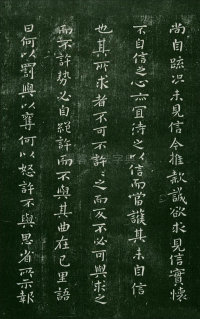 尚自疏況未見信今推款誠欲求見信實懷
不自信之心亦宜待之以信而當護其未自信
也其所求者不可不許許之而又不必可與求之
而不許勢必自絕許而不與其曲在己里語
曰何以罰與以奪何以怒許不與思省所示報